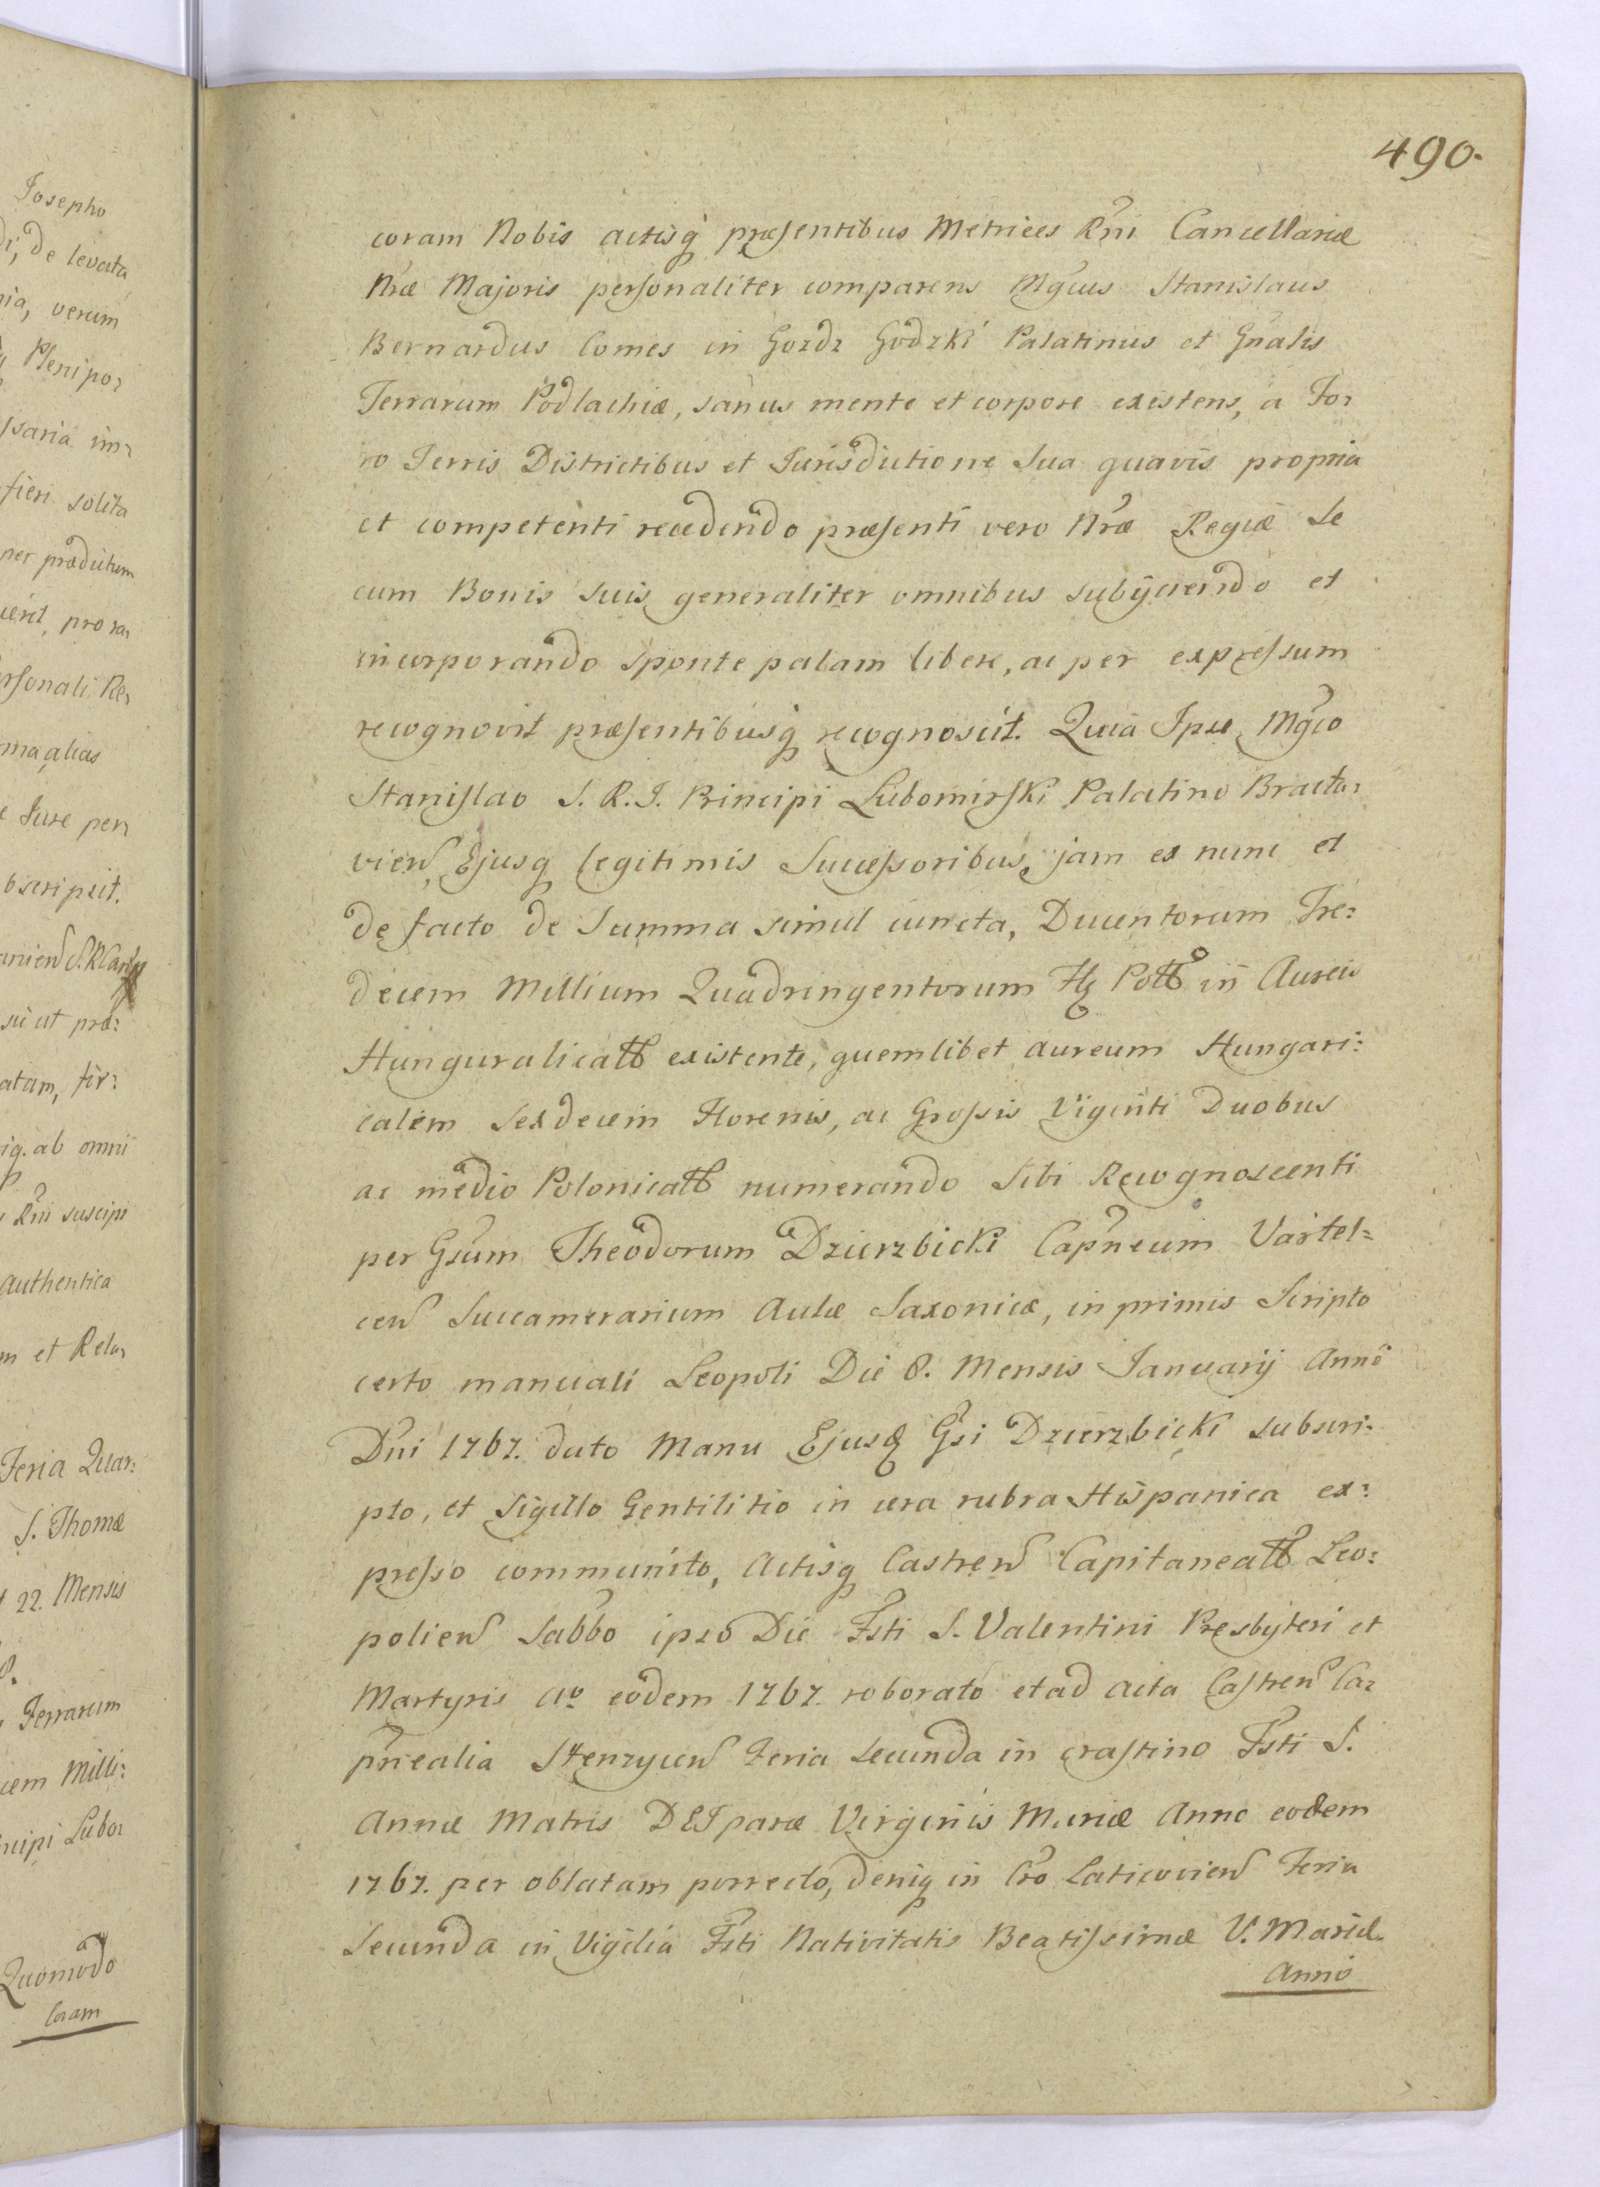 Josepho
de levata
nia, verum
Plenipo-
ssaria im-
fieri solita
per prædictum
uerit, pro ra-
ersonali Re-
ma alias
Jure per-
bscripsit.
sicut præ-
atam, fir-
iq. ab omni
Rni suscipi
authentica
m et Rela-
Feria Quar-
S. Thomæ
22. Mensis
Terrarum
cem Milli-
ncipi Lubo-
Quomodo
Coram
490.
coram Nobis actisq præsentibus Metrices Rni Cancellariæ
Nræ Majoris personaliter comparens Mgcus Stanislaus
Bernardus Comes in Gozdz Godzki Palatinus et Gnalis
Terrarum Podlachiæ, sanus mente et corpore existens, a Fo-
ro Terris Districtibus et Jurisdictione Sua quavis propria
et competenti recedendo præsenti vero Nræ Regiæ Se
cum Bonis suis generaliter omnibus subijciendo et
incorporando sponte palam libere, ac per expressum
recognovit præsentibusq recognoscit. Quia Ipse Mgco
Stanislao S. R. I. Principi Lubomirski Palatino Bracla-
vien, Ejusq legitimis Successoribus, jam ex nunc et
de facto de Summa simul iuncta, Ducentorum Tre-
decem Millium Quadringentorum Flg Poll in Aureis
Hunguralicall existente, quemlibet aureum Hungari-
calem Sexdecem Florenis, ac Grossis Viginti Duobus
ac medio Polonicall numerando Sibi Recognoscenti
per Gsum Theodorum Dzierzbicki Capneum Vartel-
cen Succamerarium Aulæ Saxonicæ, in primis Scripto
certo manuali Leopoli Die 8. Mensis Januarij Anno
Dni 1767. dato Manu Ejusd Gsi Dzierzbicki subscri-
pto, et Sigillo Gentilitio in cera rubra Hispanica ex-
presso communito, Actisq Castren Capitaneall Leo-
polien Sabbo ipso Die Fsti S. Valentini Presbyteri et
Martyris Ao eodem 1767. roborato et ad Acta Castren Ca-
pnealia Stenzycen Feria Secunda in crastino Fsti S.
Annæ Matris DEIparæ Virginis Mariæ Anno eodem
1767. per oblatam porrecto, deniq in Cro Laticovien Feria
Secunda in Vigilia Fsti Nativitatis Beatissimæ V. Mariæ
Anno